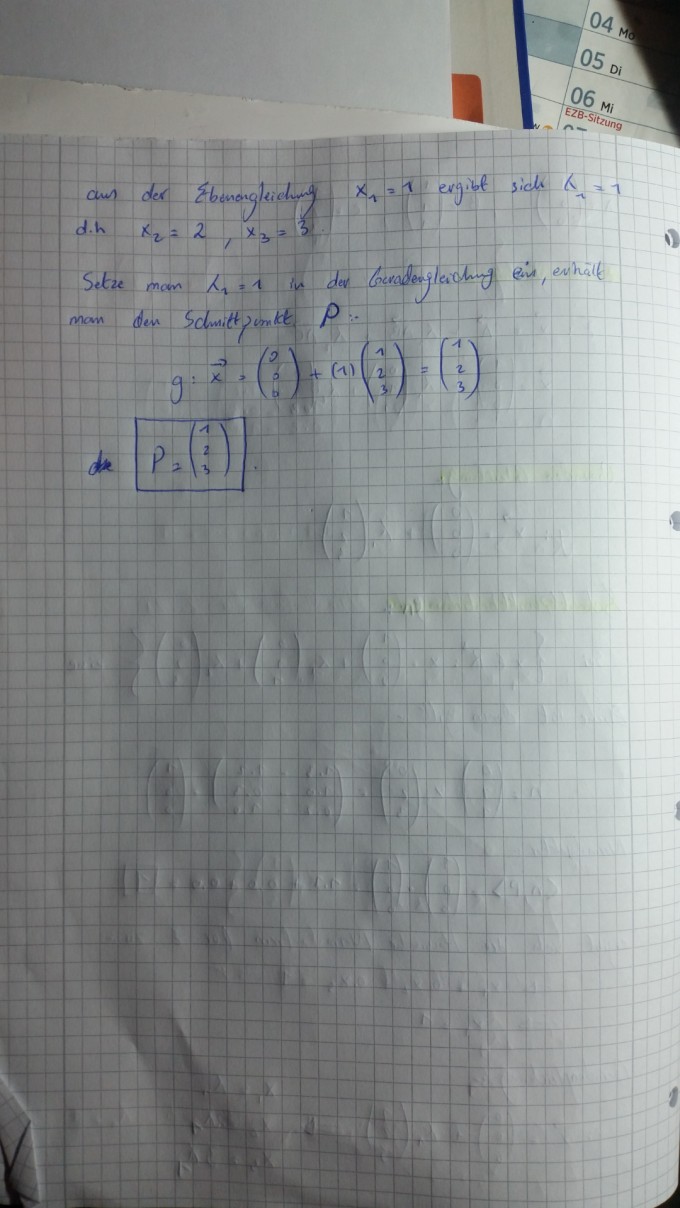 04 Mo
05 Di
06 Mi
EZB-Sitzung
aus der Ebenengleichung x₁ = 1 ergibt sich λ₁ = 1
d.h x₂ = 2 , x₃ = 3.
Setze man λ₁ = 1 in der Geradengleichung ein, erhält
man den Schnittpunkt P:
g: x⃗ = (0 0 0) + (1) (1 2 3) = (1 2 3)
P = (1 2 3).